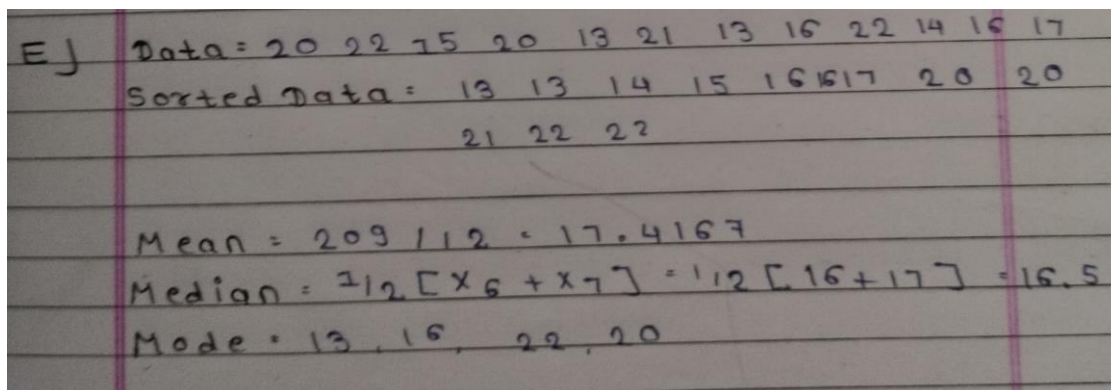 E] Data = 20 22 15 20 13 21 13 16 22 14 16 17
Sorted Data = 13 13 14 15 16 16 17 20 20
21 22 22
Mean = 209 / 12 = 17.4167
Median = 1/2 [ x6 + x7 ] = 1/2 [ 16 + 17 ] = 16.5
Mode = 13, 16, 22, 20